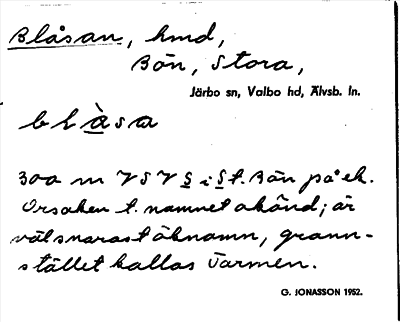 Blåsan, hmd,
Bön, Stora,
Järbo sn, Valbo hd, Älvsb. ln.
blàsa
300 m VSV S i St. Bön på ek.
Orsaken t. namnet okänd; är
väl snarast öknamn, grann-
stället kallas Tarmen.
G. JONASSON 1952.